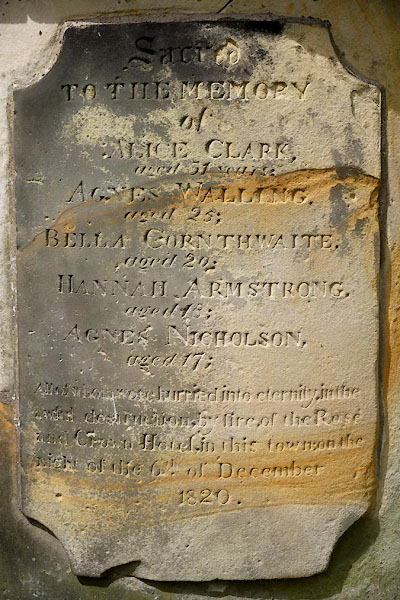 Sacred
TO THE MEMORY
of
ALICE CLARK,
aged 31 years;
AGNES WALLING,
aged 25;
BELLA CORNTHWAITE,
aged 20;
HANNAH ARMSTRONG,
aged 18;
AGNES NICHOLSON,
aged 17;
All of whom were hurried into eternity, in the
awful destruction, by fire, of the Rose
and Crown Hotel, in this town, on the
night of the 6th of December
1820.